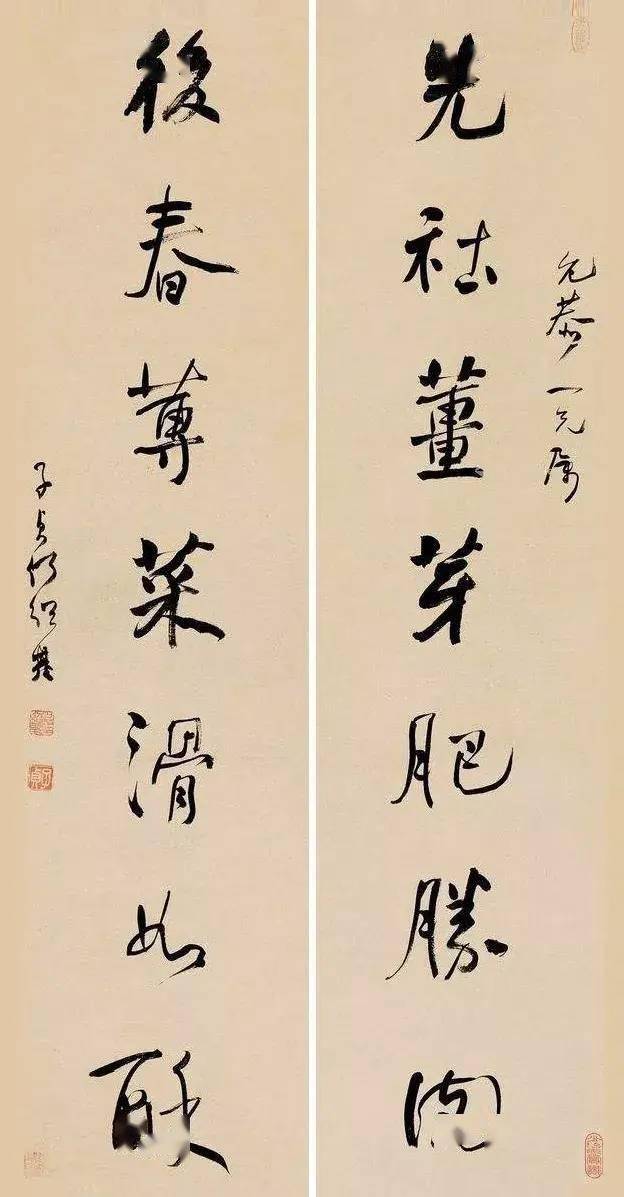 允恭一兄屬
先社薑芽肥勝肉
後春蓴菜滑如酥
子貞何紹基